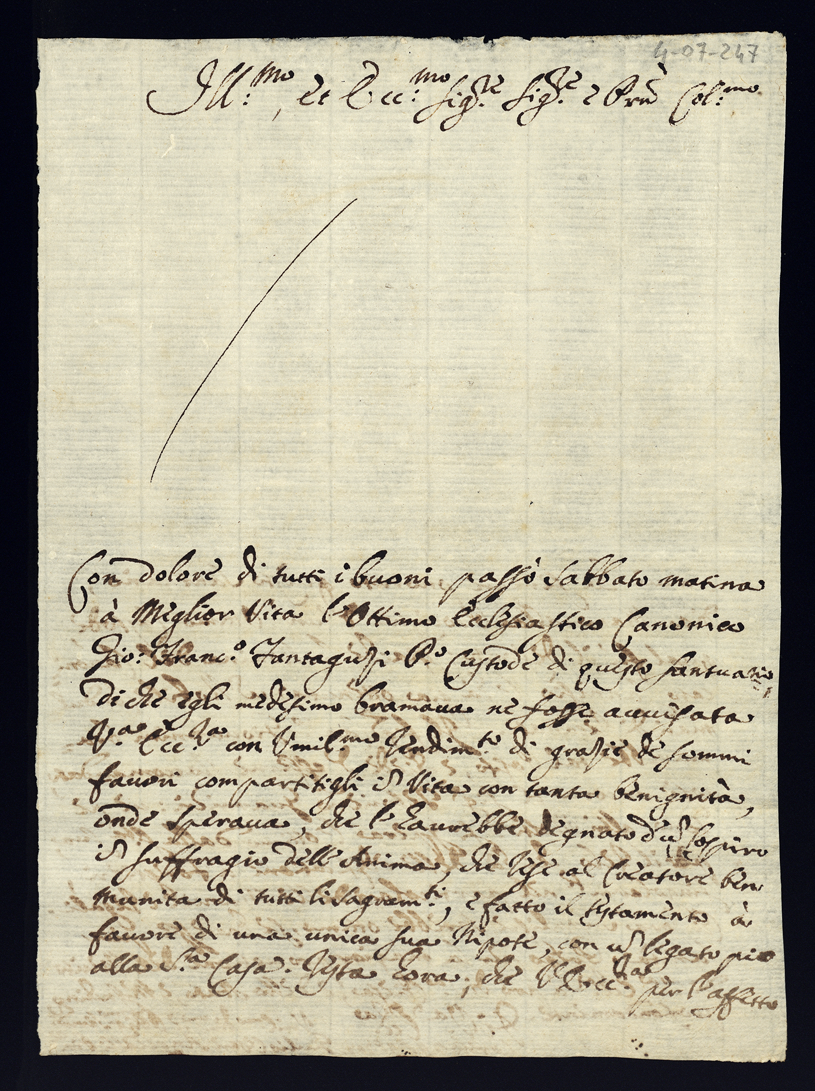 4-07-247
Ill:mo, et Ecc:mo Sig:re Sig:re e Prñ Col:mo
Con dolore di tutti i buoni passò Sabbato matina
à Meglior Vita l'Ottimo Ecclesiastico Canonico
Gio: Franc:o Po Custode di questo Santuario,
di che egli medesimo bramava ne fosse avvisata
V:a Ecc:za con Umil:mo rendim:to di grazie de sommi
favori compartitigli in Vita con tanta benignità,
onde sperava, che l'haurebbe degnato d'un sospiro
in suffragio dell'Anima, che rese al Creatore ben
munita di tutti li sagram:ti, e fatto il testamento à
favore di una unica sua Nipote, con un legato pio
alla S:ta Casa. Resta hora, che V: Ecc:za per l'affetto